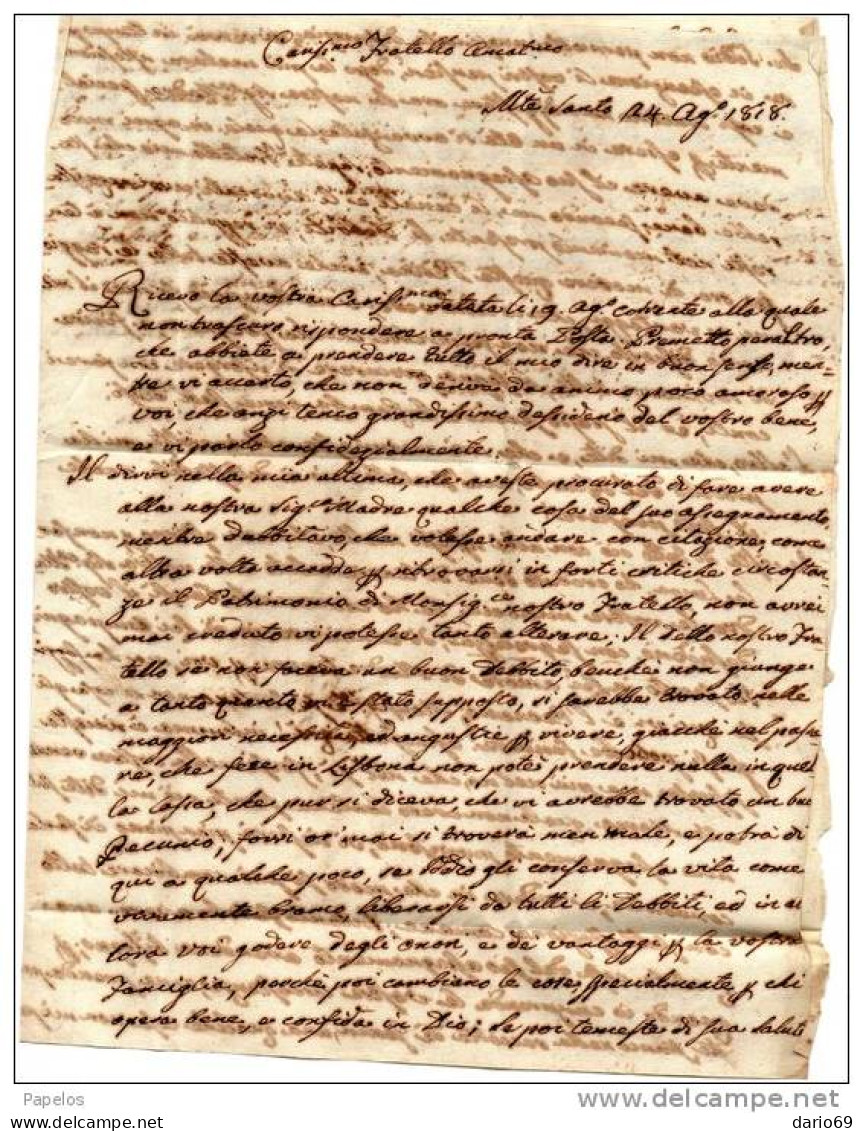 Caris.mo Fratello Amat.mo
Mte Santo 24. Ag.o 1818.
Ricevo la vostra Cariss.ma datata li 19. Ag.o corrente alla quale
non trascuro rispondere a pronta Posta. Premetto peraltro,
che abbiate a prendere tutto il mio dire in buon senso, men-
tre vi accerto, che non deriva da animo poco amoroso p
voi, che anzi tengo grandissimo dessiderio del vostro bene,
e vi parlo confidezialmente.
Il dirvi nella mia ultima, che aveste procurato di fare avere
alla nostra Sig.ra Madre qualche cosa del suo assegnamento,
mentre dubbitavo, che volesse andare con citazione, come
altra volta accadde, p ritrovarsi in forti critiche circostan-
ze il Patrimonio di Monsig.re nostro Fratello, non avrei
mai creduto vi potesse tanto alterare; Il detto nostro Fra-
tello se non faceva un buon Debbito, benche non giunge
a tanto quanto mi è stato supposto, si sarebbe trovato nelle
maggiori necessità, ed angustie p vivere, giacchè nel passa-
re, che fece in Lisbona non potè prendere nulla in quel-
la Casa, che pur si diceva, che vi avrebbe trovato un buo
Pecunio; forsi or mai si troverà men male, e potrà di
qui a qualche poco, se Iddio gli conserva la vita come
vivamente bramo, liberarsi da tutti li Debbiti, ed in al
lora voi godere degli onori, e de vantaggi p la vostra
Famiglia, perchè poi cambiano le cose specialmente p chi
opera bene, e confida in Dio; Se poi temeste di sua salute
Papelos
www.delcampe.net
dario69